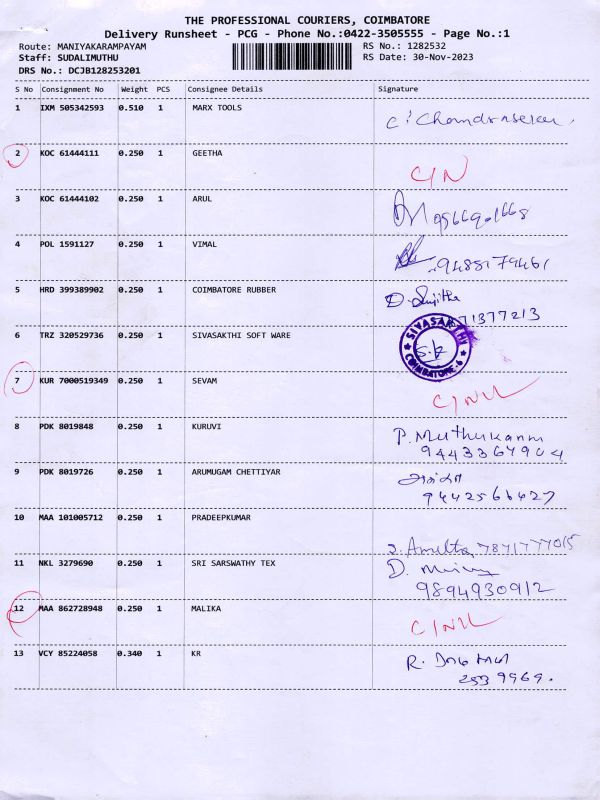 THE PROFESSIONAL COURIERS, COIMBATORE
Delivery Runsheet - PCG - Phone No.:0422-3505555 - Page No.:1
Route: MANIYAKARAMPAYAM RS No.: 1282532
Staff: SUDALIMUTHU RS Date: 30-Nov-2023
DRS No.: DCJB128253201
S No Consignment No Weight PCS Consignee Details Signature
1 IXM 505342593 0.510 1 MARX TOOLS
2 KOC 61444111 0.250 1 GEETHA C/N
3 KOC 61444102 0.250 1 ARUL
4 POL 1591127 0.250 1 VIMAL 9488179461
5 HRD 399389902 0.250 1 COIMBATORE RUBBER D. Sujitha
71377213
6 TRZ 320529736 0.250 1 SIVASAKTHI SOFT WARE SIVASAKTHI COIMBATORE-6
7 KUR 7000519349 0.250 1 SEVAM
8 PDK 8019848 0.250 1 KURUVI P. Muthukannu
9443367904
9 PDK 8019726 0.250 1 ARUMUGAM CHETTIYAR
9442566427
10 MAA 101005712 0.250 1 PRADEEPKUMAR
7871777015
11 NKL 3279690 0.250 1 SRI SARSWATHY TEX
9894930912
12 MAA 862728948 0.250 1 MALIKA
13 VCY 85224058 0.340 1 KR
253 9969.